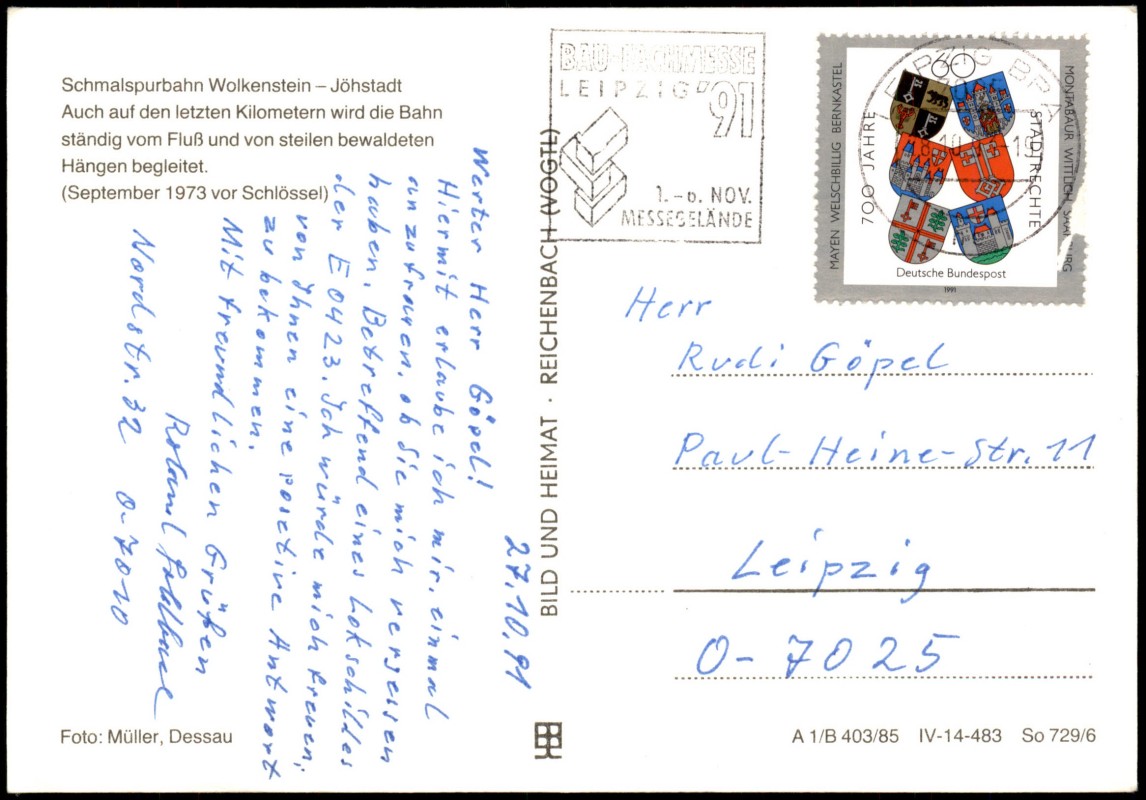 Schmalspurbahn Wolkenstein – Jöhstadt
Auch auf den letzten Kilometern wird die Bahn
ständig vom Fluß und von steilen bewaldeten
Hängen begleitet.
(September 1973 vor Schlössel)
27.10.91
Werter Herr Göpel!
Hiermit erlaube ich mir, einmal
anzufragen, ob Sie mich vergessen
haben. Betreffend eines Lokschildes
der E 0423. Ich würde mich freuen,
von Ihnen eine positive Antwort
zu bekommen.
Mit freundlichen Grüßen
Roland
Nordstr. 32 O-7010
Foto: Müller, Dessau
BILD UND HEIMAT · REICHENBACH (VOGTL)
BAU-FACHMESSE
LEIPZIG '91
1.-6. NOV.
MESSEGELÄNDE
LEIPZIG BPA
MAYEN WELSCHBILLIG BERNKASTEL
700 JAHRE
STADTRECHTE
MONTABAUR WITTLICH
60
Deutsche Bundespost
1991
Herr
Rudi Göpel
Paul-Heine-Str. 11
Leipzig
O-7025
A 1/B 403/85 IV-14-483 So 729/6